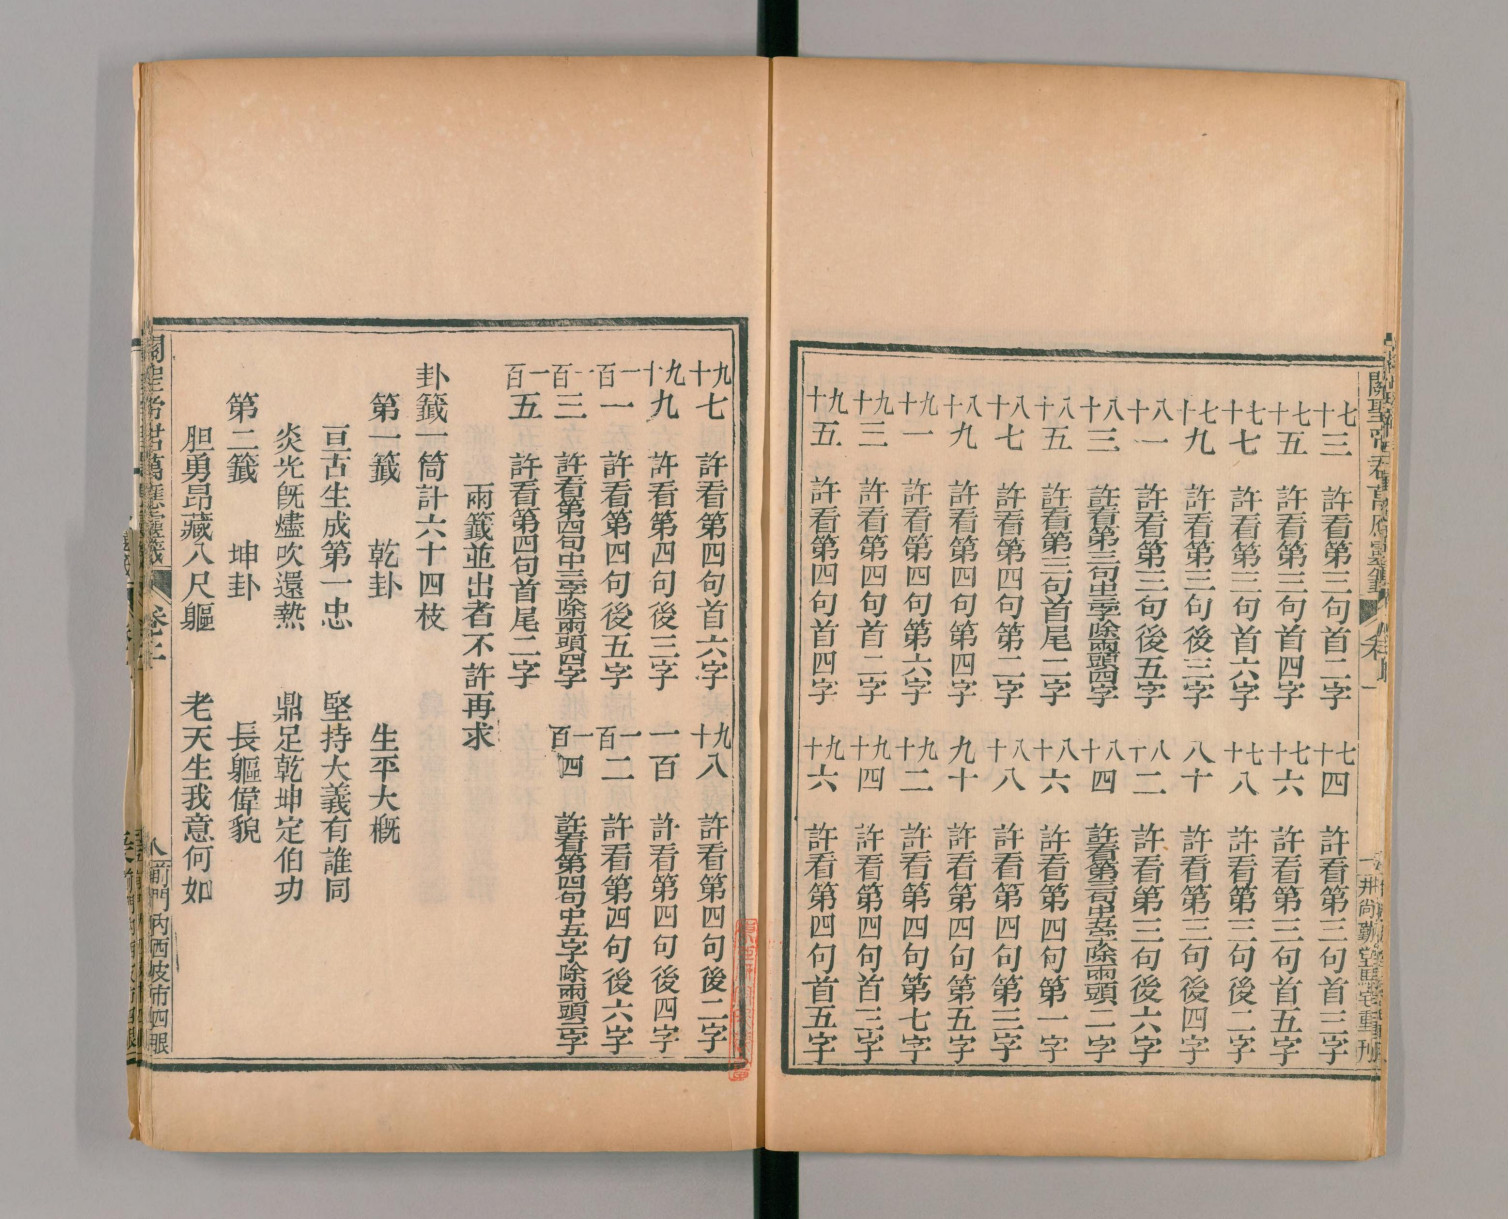 關聖帝君萬應靈籤
七十三 許看第三句首二字 七十四 許看第三句首三字
七十五 許看第三句首四字 七十六 許看第三句首五字
七十七 許看第三句首六字 七十八 許看第三句後二字
七十九 許看第三句後三字 八十 許看第三句後四字
八十一 許看第三句後五字 八十二 許看第三句後六字
八十三 許看第三句中三字除兩頭四字 八十四 許看第三句中五字除兩頭二字
八十五 許看第三句首尾二字 八十六 許看第四句第一字
八十七 許看第四句第二字 八十八 許看第四句第三字
八十九 許看第四句第四字 九十 許看第四句第五字
九十一 許看第四句第六字 九十二 許看第四句第七字
九十三 許看第四句首二字 九十四 許看第四句首三字
九十五 許看第四句首四字 九十六 許看第四句首五字
九十七 許看第四句首六字 九十八 許看第四句後二字
九十九 許看第四句後三字 一百 許看第四句後四字
一百一 許看第四句後五字 一百二 許看第四句後六字
一百三 許看第四句中三字除兩頭四字 一百四 許看第四句中五字除兩頭二字
一百五 許看第四句首尾二字
兩籤並出者不許再求
卦籤一筒計六十四枝
第一籤 乾卦 生平大概
亘古生成第一忠 堅持大義有誰同
炎光旣燼吹還熱 鼎足乾坤定伯功
第二籤 坤卦 長軀偉貌
胆勇昂藏八尺軀 老天生我意何如
關聖帝君萬應靈籤 卷之二 八 前門內西皮市四眼